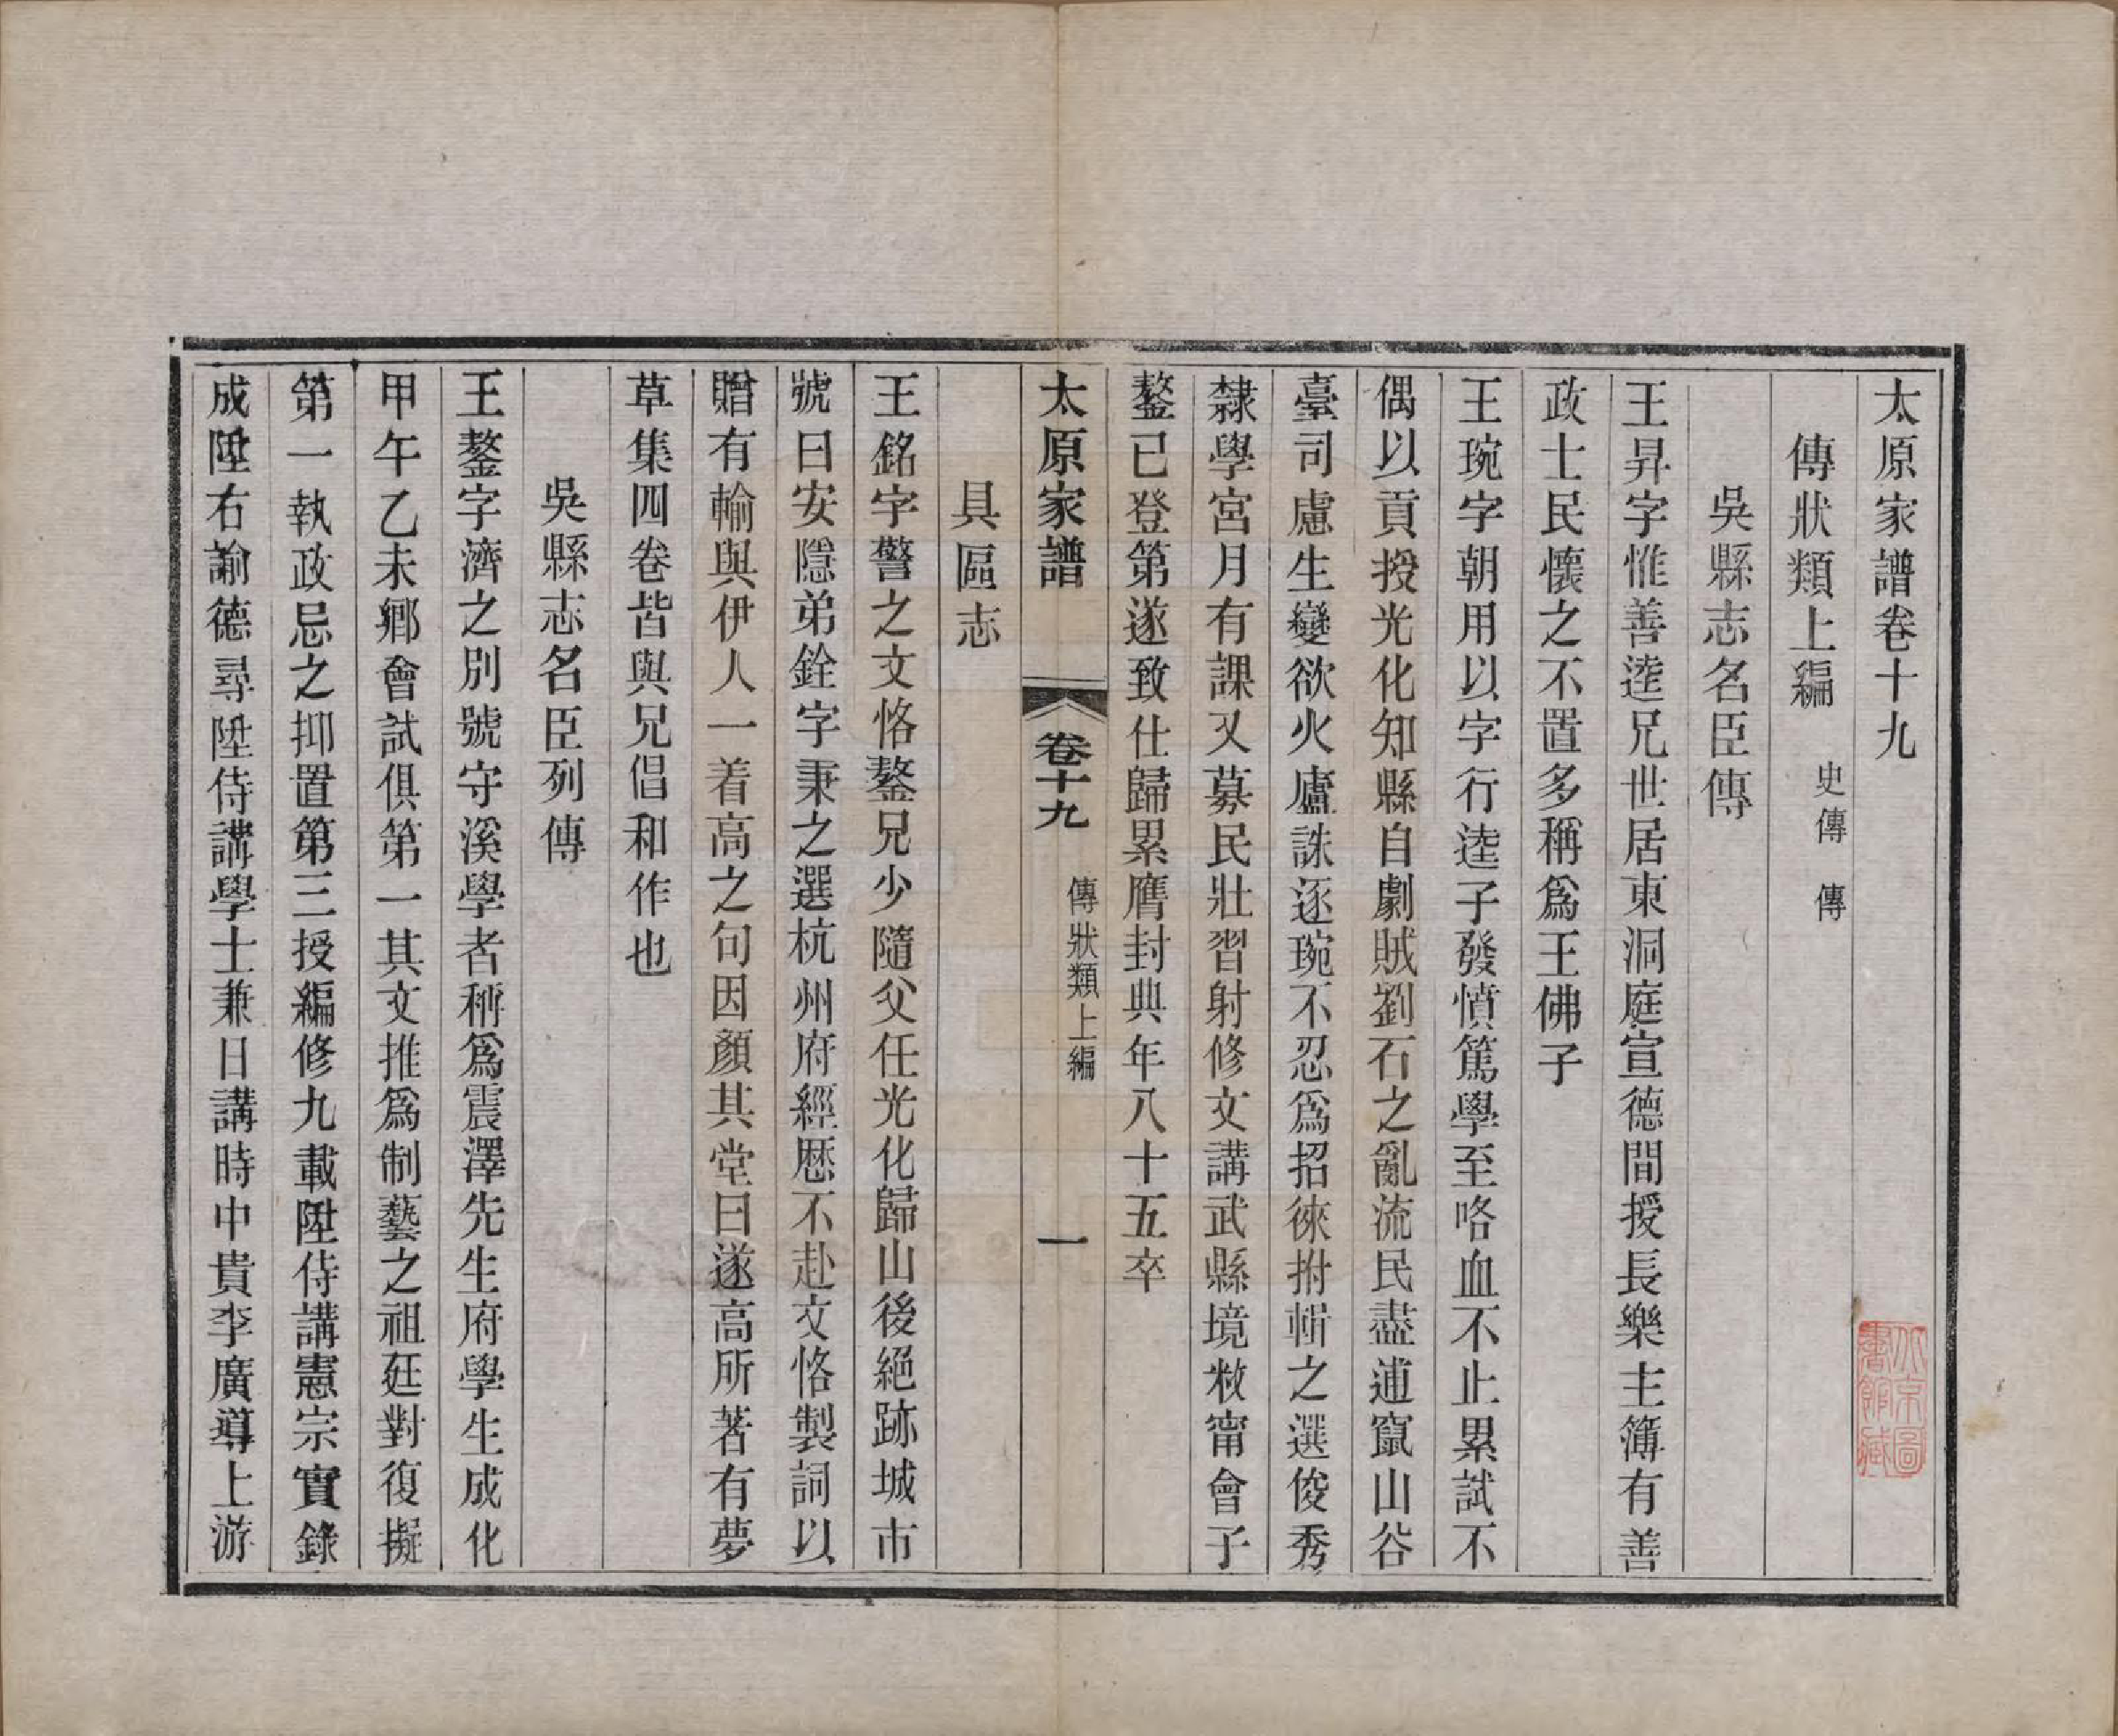 太原家譜卷十九
傳狀類上編 史傳 傳
吳縣志名臣傳
王昇字惟善逵兄世居東洞庭宣德間授長樂主簿有善
政士民懷之不置多稱爲王佛子
王琬字朝用以字行逵子發憤篤學至咯血不止累試不
偶以貢授光化知縣自劇賊劉石之亂流民盡逋竄山谷
臺司慮生變欲火廬誅逐琬不忍爲招徠拊輯之選俊秀
隸學宮月有課又募民壯習射修文講武縣境敉甯會子
鏊已登第遂致仕歸累膺封典年八十五卒
太原家譜 卷十九 傳狀類上編 一
具區志
王銘字警之文恪鏊兄少隨父任光化歸山後絕跡城市
號曰安隱弟銓字秉之選杭州府經歷不赴文恪製詞以
贈有輸與伊人一着高之句因顏其堂曰遂高所著有夢
草集四卷皆與兄倡和作也
吳縣志名臣列傳
王鏊字濟之別號守溪學者稱爲震澤先生府學生成化
甲午乙未鄉會試俱第一其文推爲制藝之祖廷對復擬
第一執政忌之抑置第三授編修九載陞侍講憲宗實錄
成陞右諭德尋陞侍講學士兼日講時中貴李廣導上游
北京圖
書館藏